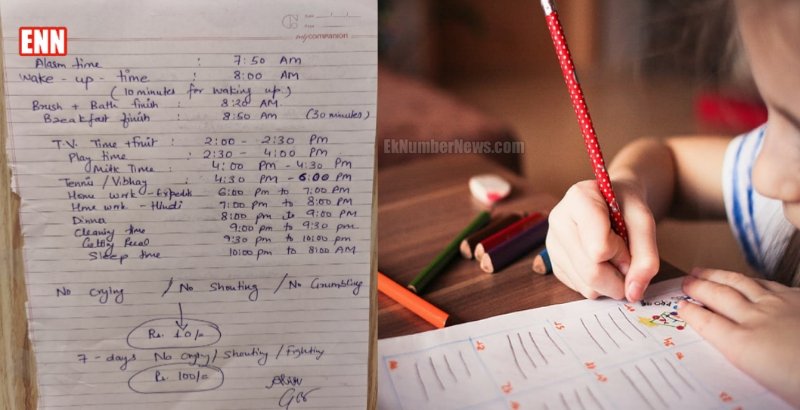 ENN
mycompanion
Alasm time : 7:50 AM
Wake-up-time : 8:00 AM
(10 minutes for waking up)
Brush + Bath finish : 8:20 AM
Breakfast finish : 8:50 AM (30 minutes)
T.V. Time + fruit : 2:00 - 2:30 PM
Play time : 2:30 - 4:00 PM
Milk Time : 4:00 PM - 4:30 PM
Tennis / Vibhaj : 4:30 PM - 6:00 PM
Home work - : 6:00 pm to 7:00 PM
Home work - Hindi 7:00 PM to 8:00 PM
Dinner 8:00 pm to 9:00 PM
Cleaning time 9:00 pm to 9:30 pm
9:30 pm to 10:00 pm
Sleep time 10:00 pm to 8:00 AM
No Crying / No Shouting / No Grumbling
Rs. 10/-
7 - days No crying / Shouting / Fighting
Rs. 100/-
EkNumberNews.com